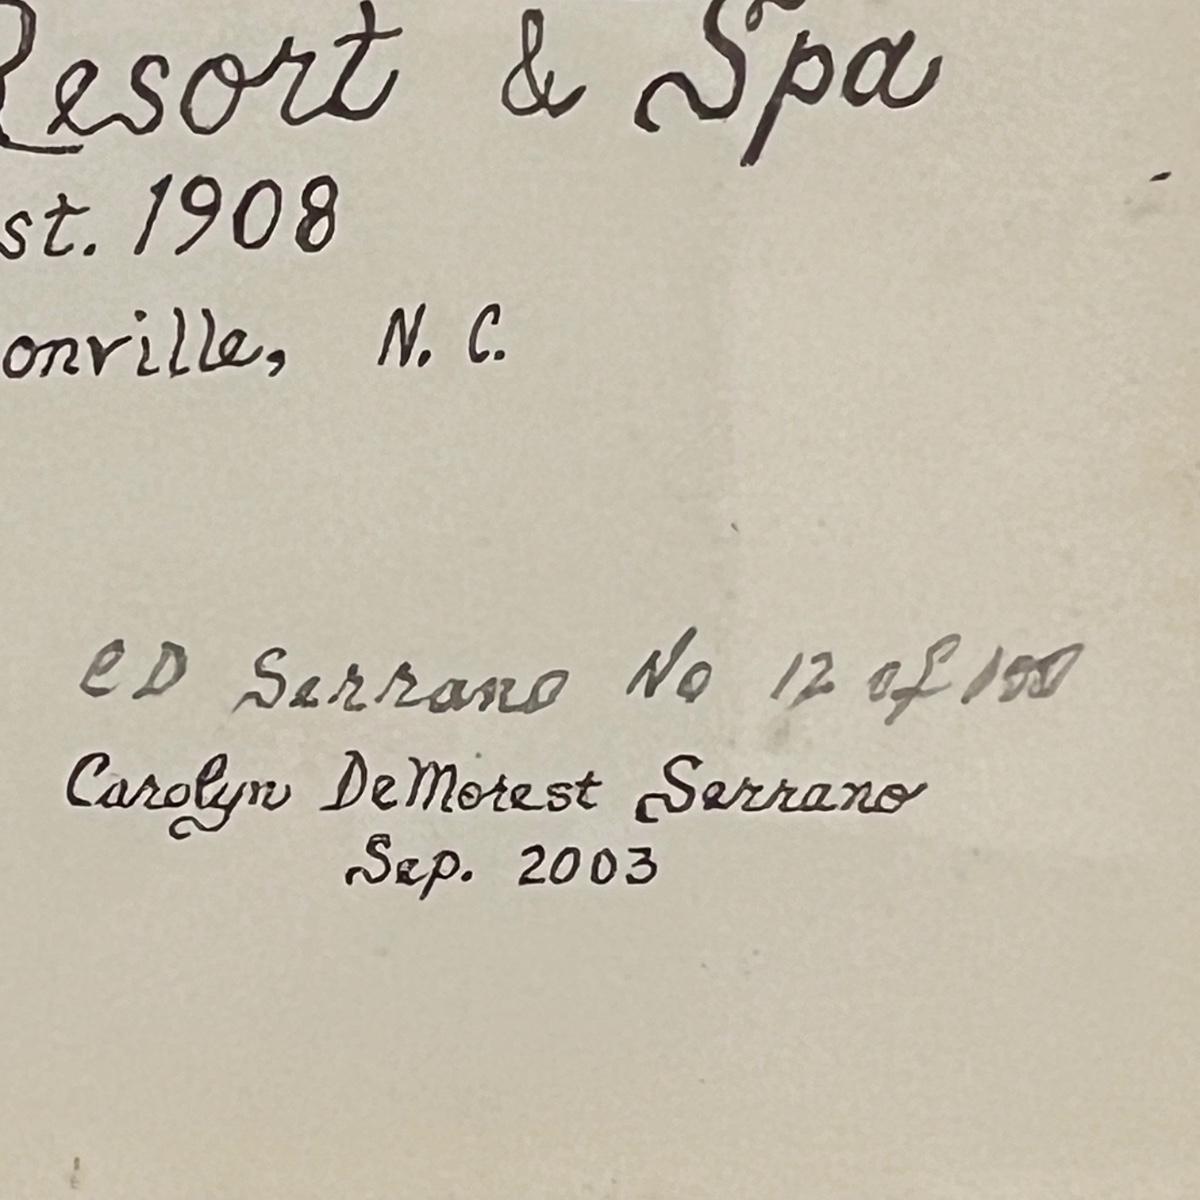 Resort & Spa
st. 1908
onville, N. C.
CD Serrano No 12 of 100
Carolyn DeMorest Serrano
Sep. 2003